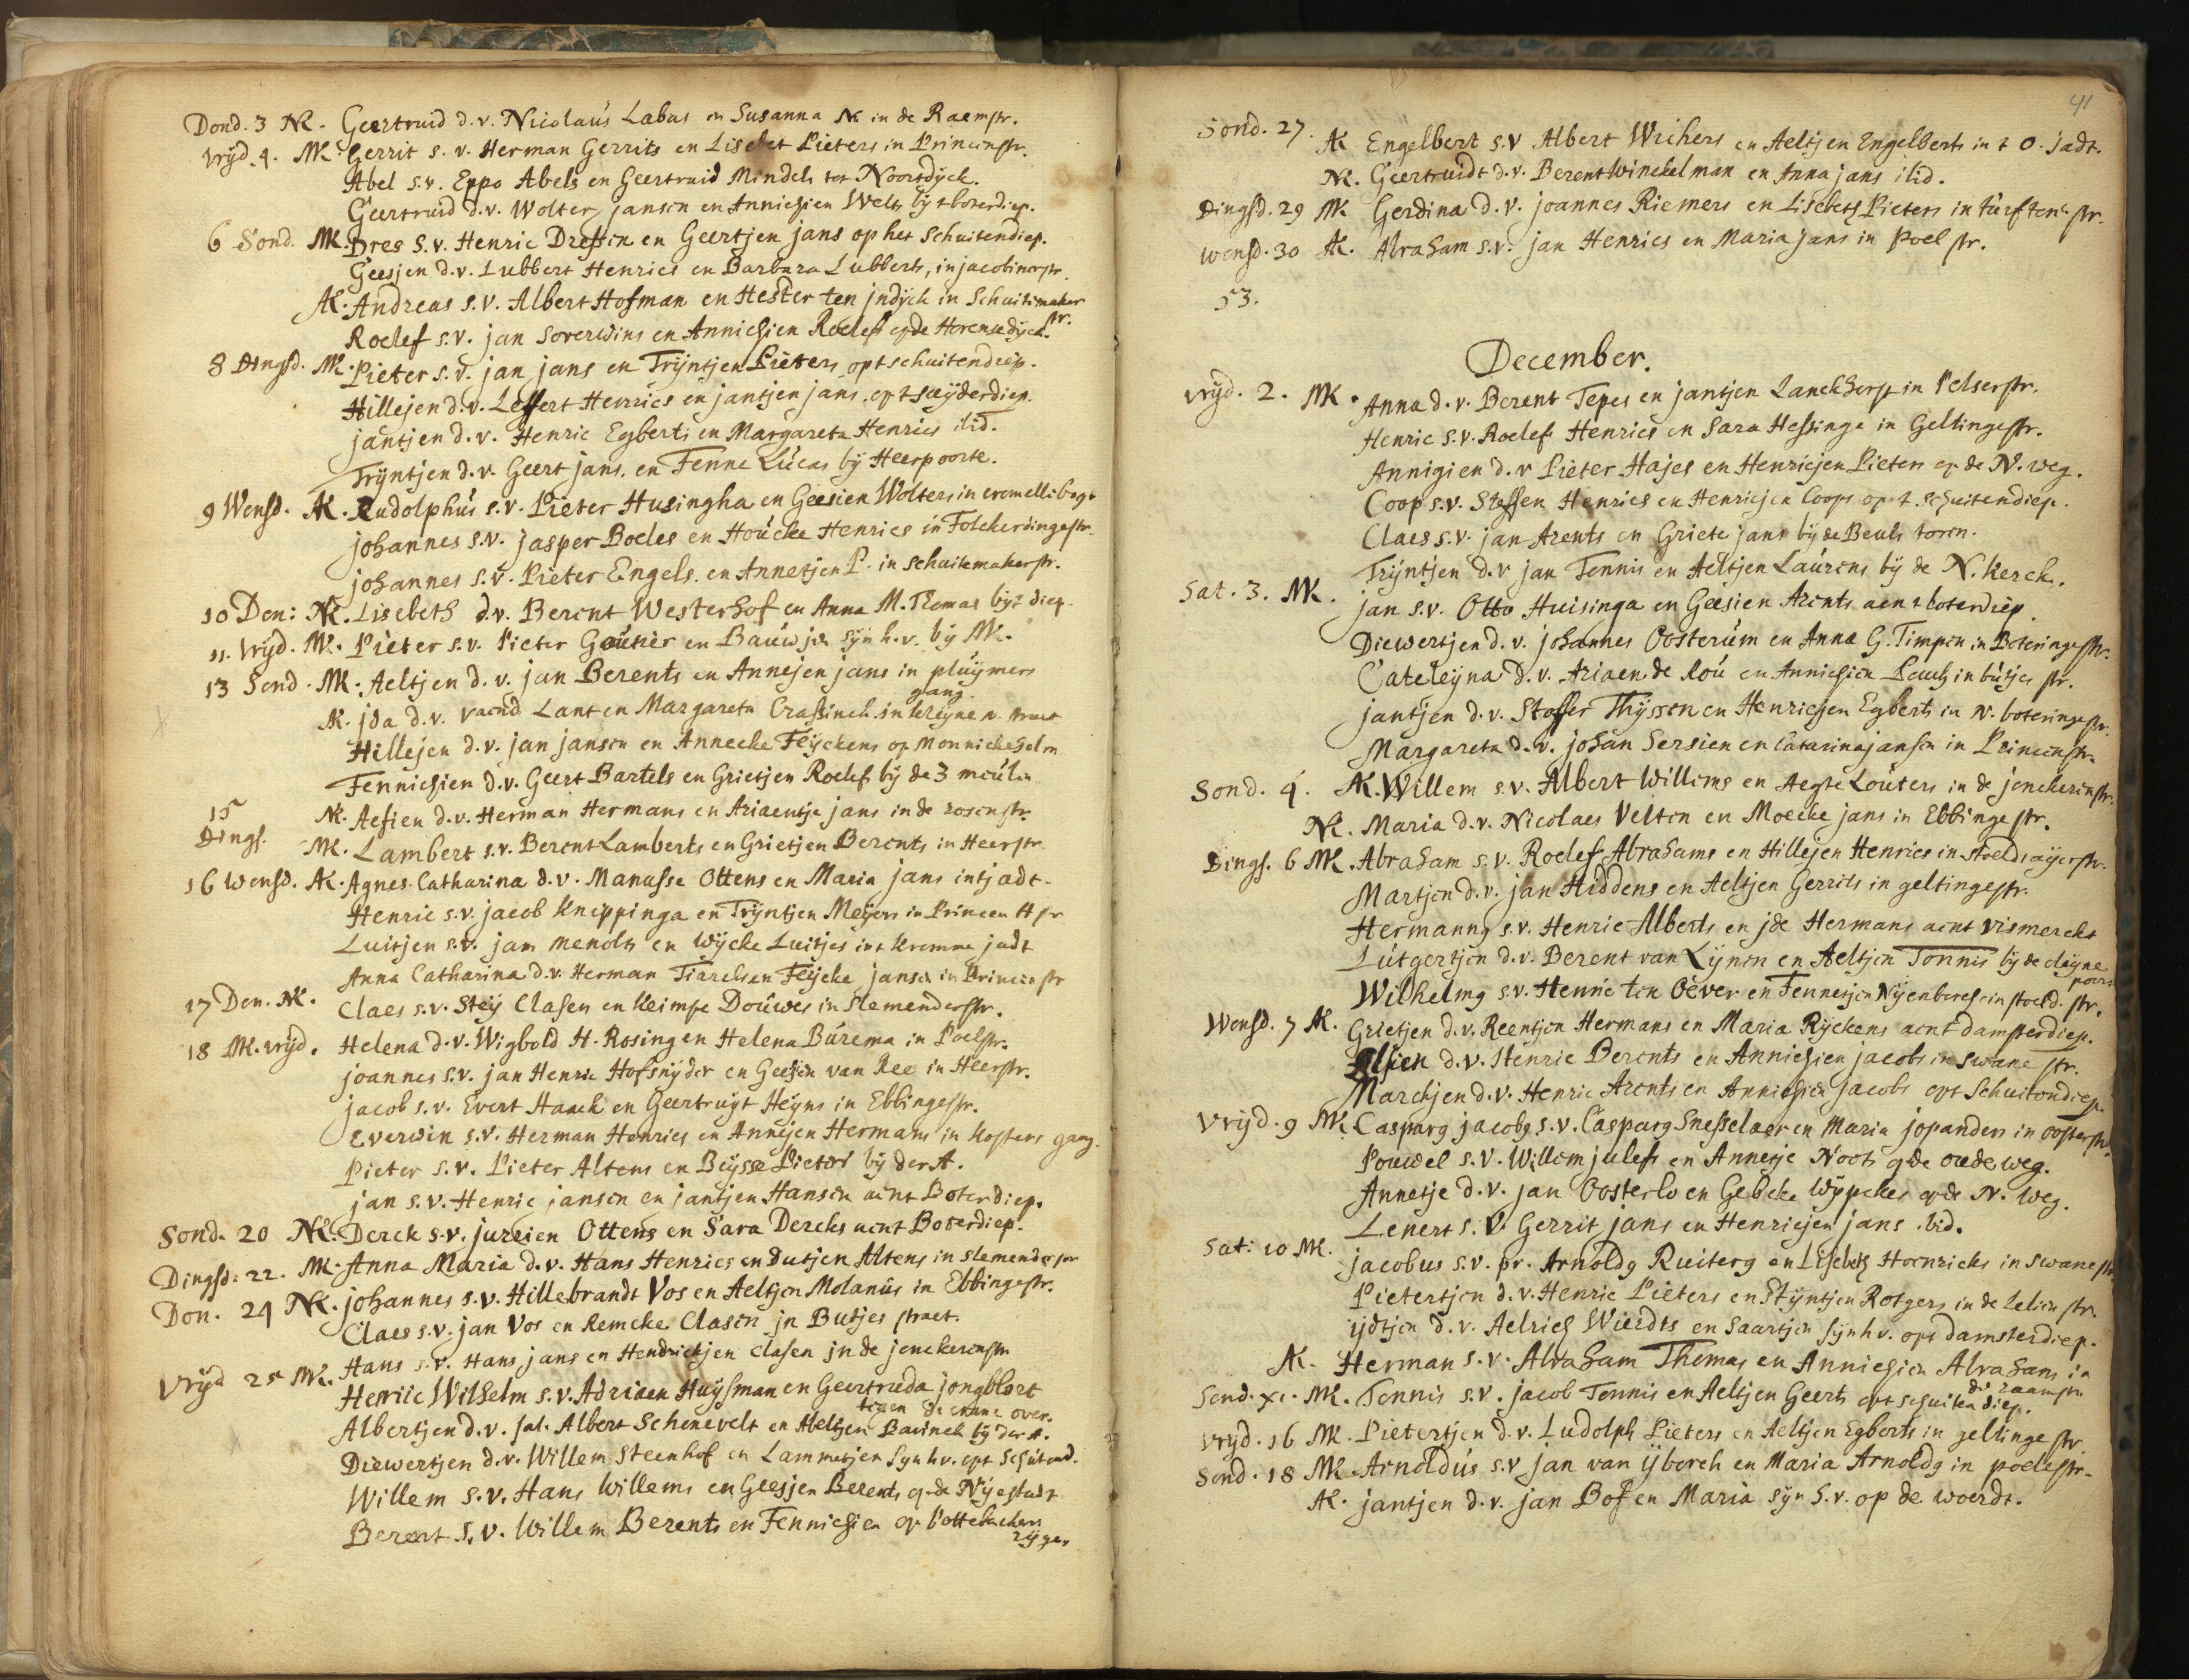 Dond. 3 NK. Geertruid d.v. Nicolaus Labus en Susanna NK in de Raemstr.
vrÿd. 4. MK. Gerrit s.v. Herman Gerrits en Lisebet Pieters in Princenstr.
Abel s.v. Eppo Abels en Geertruid Mindels tot Noortdÿck.
Geertruid d.v. Wolter jansen en Annichien Welts bÿ t boterdiep.
6 Sond. MK. Dres s.v. Henric Dressen en Geertjen jans op het Schuitendiep.
Geesjen d.v. Lubbert Henrics en Barbara Lubberts, in jacobinerstr.
AK. Andreas s.v. Albert Hofman en Hester ten jndÿck in Schuitemaker
str.
Roelef s.v. jan Soverwins en Annichien Roelefs op de Horensedÿck.
8 Dingsd. MK. Pieter s.v. jan jans en Trÿntjen Pieters opt schuitendiep.
Hillejen d.v. Leffert Henrics en jantjen jans, op t sauÿderdiep.
jantjen d.v. Henric Egberts en Margareta Henrics ibid.
Trÿntjen d.v. Geert jans en Fenne Lucas bÿ Heerpoorte.
9 Wensd. AK. Rudolphus s.v. Pieter Husingha en Geesien Wolters in cromellebogt
johannes s.v. jasper Boeles en Houcke Henrics in Folckerdingestr.
johannes s.v. Pieter Engels en Annetjen P. in Schuitemakerstr.
10 Don: NK. Lisebeth d.v. Berent Westerhof en Anna M. Thomas bÿt diep.
11. vrÿd. MK. Pieter s.v. Pieter Goutier en Bauwjen sÿn h.v. bÿ MK.
13 Sond. MK. Aeltjen d.v. jan Berents en Annejen jans in pluÿmers
gang.
AK. jda d.v. vaend Lant en Margareta Crassinck in kleÿne n. straet
Hillejen d.v. jan jansen en Annecke Feÿckens op Monnickeholm
Fennichien d.v. Geert Bartels en Grietjen Roelefs bÿ de 3 meulen
15
Dings.
NK. Aefien d.v. Herman Hermans en Ariaentje jans in de rosenstr.
MK. Lambert s.v. Berent Lamberts en Grietjen Berents in Heerstr.
16 wensd. AK. Agnes Catharina d.v. Manasse Ottens en Maria jans int jadt.
Henric s.v. jacob Knippinga en Trÿntjen Meÿers in Princen H str
Luitjen s.v. jan Menolts en Wÿcke Luitjes int kromme jadt
Anna Catharina d.v. Herman Tiarcksen Feÿcke jansen in Princenstr
17 Don. NK. Claes s.v. Steÿ Clasen en Keimpe Douwes in Slemenderstr.
18 MK. vrÿd. Helena d.v. Wigbold H. Rosing en Helena Burema in Poelstr.
joannes s.v. jan Henric Hofsnÿder en Geesien van Ree in Heerstr.
jacob s.v. Evert Haack en Geertruÿt Heÿns in Ebbingestr.
Everwin s.v. Herman Henrics en Annejen Hermans in kosters gang.
Pieter s.v. Pieter Altens en Beÿsse Pieters bÿ der A.
jan s.v. Henric jansen en jantjen Hansen aent Boterdiep.
Sond. 20 NK. Derck s.v. jurrien Ottens en Sara Dercks aent Boterdiep.
Dingsd. 22. MK. Anna Maria d.v. Hans Henrics en Dutjen Altens in Slemenderstr
Don. 24 NK. johannes s.v. Hillebrandt Vos en Aeltjen Molanus in Ebbingestr.
Claes s.v. jan Vos en Remcke Clasen jn Butjes straet.
Vrÿd 25 MK. Hans s.v. Hans jans en Hendrickjen Clasen jn de jonckerenstr
Henric Wilhelm s.v. Adriaen Huÿsman en Geertruda jongbloet
tegen de crane over.
Albertjen d.v. sal. Albert Schonevelt en Aeltjen Bavinck bÿ der A.
Diewertjen d.v. Willem Steenhof en Lammetjen sÿn h.v. opt Schutend.
Willem s.v. Hans Willems en Geesjen Berents op de Nÿestadt
Berent s.v. Willem Berents en Fennichien op Pottebackers
rÿge.
41
Sond. 27. AK Engelbert s.v. Albert Wichers en Aeltjen Engelberts in t O. jadt.
NK. Geertruidt d.v. Berent Winckelman en Anna jans ibid.
Dingsd. 29 MK Gerdina d.v. joannes Riemers en Lisebeth Pieters in turftor. str.
wensd. 30 AK. Abraham s.v. jan Henrics en Maria jans in Poel str.
53.
December.
vrÿd. 2. MK. Anna d.v. Berent Tepes en jantjen Lanckhorst in Pelserstr.
Henric s.v. Roelef Henrics en Sara Hessinge in Geltingestr.
Annigien d.v. Pieter Hajes en Henricjen Pieters op de N. weg.
Coop s.v. Steffen Henrics en Henricjen Coops op t schuitendiep.
Claes s.v. jan Arents en Griete jans bÿ de Beuls toren.
Trÿntjen d.v. jan Tennis en Aeltjen Laurens bÿ de N. kerck.
Sat. 3. MK. jan s.v. Otto Huisinga en Geesien Arents aen t boterdiep.
Diewertjen d.v. johannes Oosterum en Anna G. Timpen in Boteringestr.
Cateleÿna d.v. Ariaen de Rou en Annichien Pauls in butjes str.
jantjen d.v. Stoffer Thÿssen en Henricjen Egberts in N. boteringestr.
Margareta d.v. johan Sersien en Catarina jansen in Princenstr.
Sond. 4. AK. Willem s.v. Albert Willems en Aegte Louters in de jonckerenstr.
NK. Maria d.v. Nicolaes Velten en Moecke jans in Ebbinge str.
Dings. 6 MK. Abraham s.v. Roelef Abrahams en Hillejen Henrics in stoeldraÿerstr.
Martjen d.v. jan Hiddens en Aeltjen Gerrits in geltingestr.
Hermanng s.v. Henric Alberts en jde Hermans aent vismerckt
Lutgertjen d.v. Berent van Lÿnen en Aeltjen Tonnis bÿ de cleÿne
poort
Wilhelmg s.v. Henric ten Oever en Fennetjen Nÿenborch in stoeld. str.
Wensd. 7 AK. Grietjen d.v. Reentjen Hermans en Maria Rÿckens aent damsterdiep.
Elsien d.v. Henric Berents en Annichien jacobs in swane str.
Marchjen d.v. Henric Arents en Annichien jacobs opt Schuitendiep.
Vrÿd. 9 MK. Casparg jacobg s.v. Casparg Snesselaer en Maria jopanders in oosterstr.
Pouwel s.v. Willem julefs en Annetje Noots op de oude weg.
Annetje d.v. jan Oosterlo en Gebcke Wÿpckes op de N. weg.
Lenert s.v. Gerrit jans en Henricjen jans ibid.
Sat: 10 MK. jacobus s.v. pr. Arnoldg Ruiterg en Lisebeth Hoenricks in Swanestr.
Pietertjen d.v. Henric Pieters en Stÿntjen Rotgers in de Lelien str.
ÿdtjen d.v. Aelrich Wierdts en Saartjen sÿn h.v. opt damsterdiep.
AK. Herman s.v. Abraham Thomas en Annichien Abrahams in
de raamstr.
Sond. XI. MK. Tennis s.v. jacob Tennis en Aeltjen Geerts opt schuiten diep.
vrÿd. 16 MK. Pietertjen d.v. Ludolph Pieters en Aeltjen Egberts in geltinge str.
Sond. 18 MK. Arnoldus s.v. jan van ÿborch en Maria Arnoldg in poelestr.
AK. jantjen d.v. jan Bof en Maria sÿn h.v. op de woerdt.